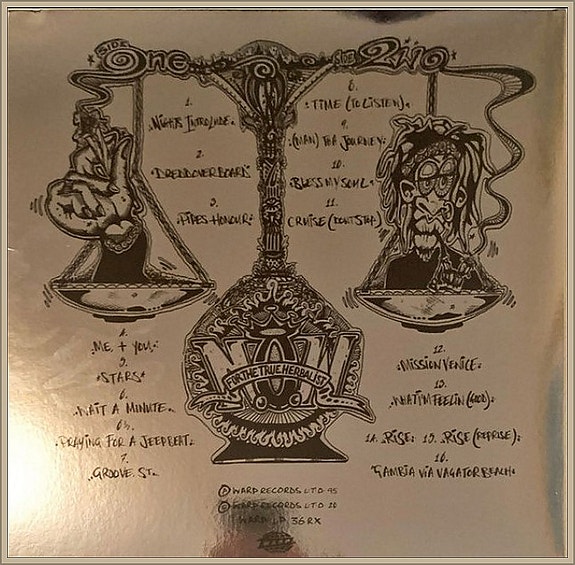 SIDE ONE
1.
NIGHTS INTROLUDE.
2.
DREADOVERBOARD
3.
PIPES HONOUR.
4.
ME + YOU.
5.
STARS
6.
WAIT A MINUTE.
6½.
PRAYING FOR A JEEPBEAT.
7.
GROOVE ST.
SIDE TWO
8.
TIME (TO LISTEN).
9.
(MAN) THA JOURNEY.
10.
BLESS MY SOUL.
11.
CRUISE (DON'T STOP)
12.
MISSION VENICE.
13.
WHAT I'M FEELIN (GOOD).
14. RISE. 15. RISE (REPRISE).
16.
GAMBIA VIA VAGATOR BEACH.
N.O.W.
FOR THE TRUE HERBALIST
Ⓟ WARP RECORDS LTD 95
© WARP RECORDS LTD 20
WARP LP 36RX